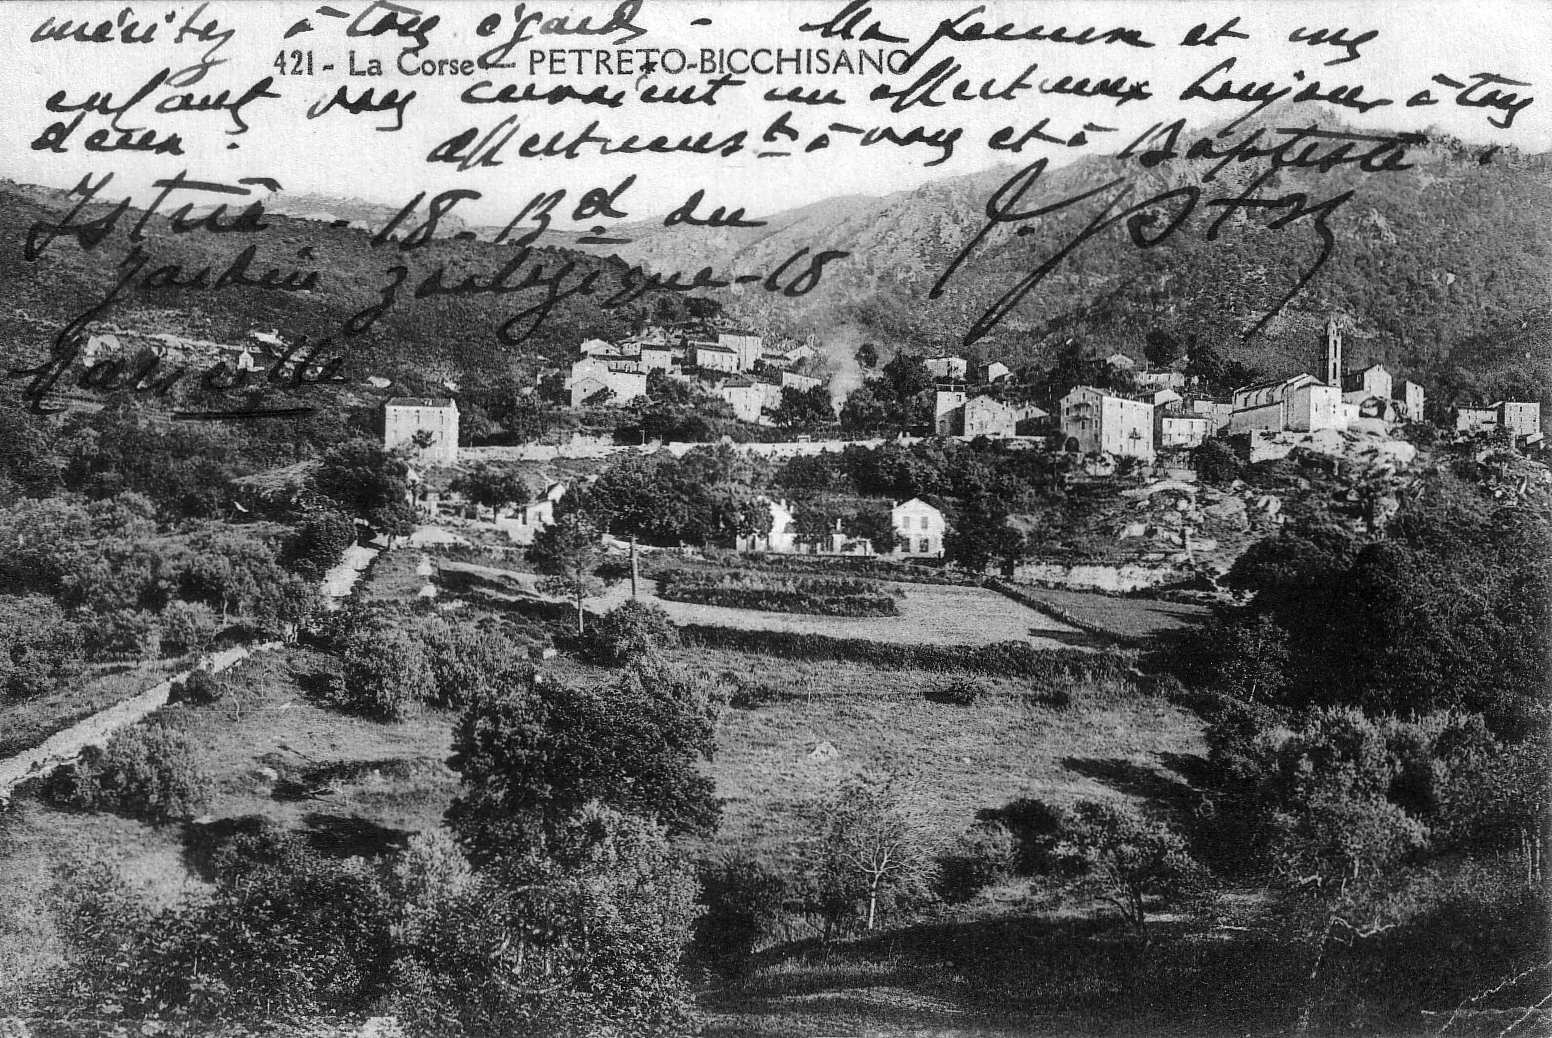 méritez à tous égards - Ma femme et mes
421 - La Corse - PETRETO-BICCHISANO
enfants vous envoient un affectueux bonjour à tous
deux. Affectueusts à vous et à Baptiste.
18 - Bd du
Jardin zoologique - 18
Marseille